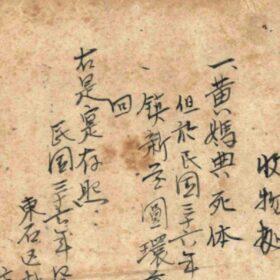 收物
一黃媽典死体
但於民國三十六年
鎮新宮圓環
回
右是寔存照
民國三十六年
東石区